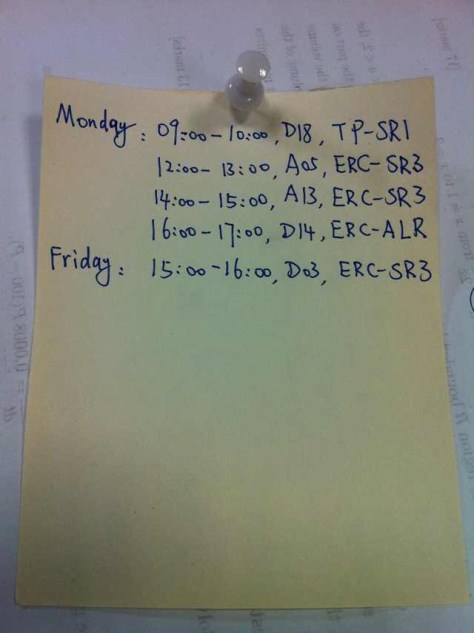 Monday: 09:00-10:00, D18, TP-SR1
12:00-13:00, A05, ERC-SR3
14:00-15:00, A13, ERC-SR3
16:00-17:00, D14, ERC-ALR
Friday: 15:00-16:00, D03, ERC-SR3